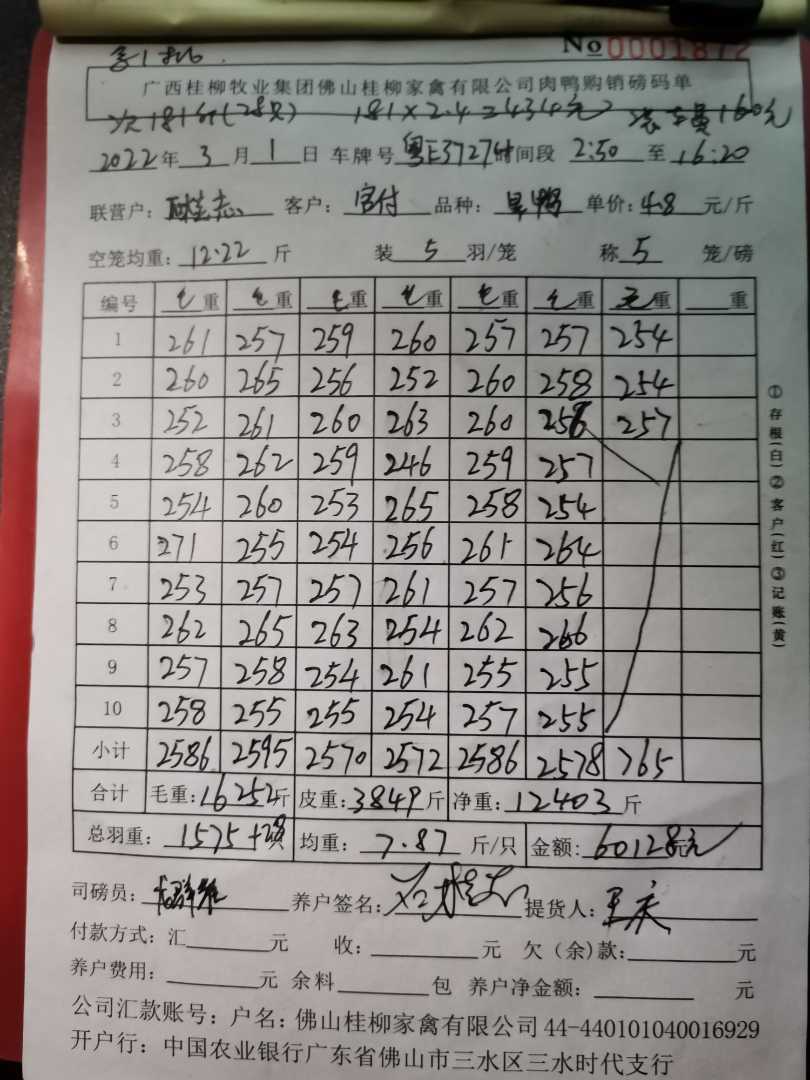 No 0001872
广西桂柳牧业集团佛山桂柳家禽有限公司肉鸭购销磅码单
次181斤(28只) 181×2.4=434元 160元
2022年3月1日 车牌号粤E37274时间段 2:50 至 16:20
联营户: 客户: 官付 品种: 旱鸭 单价: 4.8 元/斤
空笼均重: 12.22 斤 装 5 羽/笼 称 5 笼/磅
编号 毛重 毛重 毛重 毛重 毛重 毛重 毛重 重
1 261 257 259 260 257 257 254
2 260 265 256 252 260 258 254
3 252 261 260 263 260 256 257
4 258 262 259 246 259 257
5 254 260 253 265 258 254
6 271 255 254 256 261 264
7 253 257 257 261 257 256
8 262 265 263 254 262 266
9 257 258 254 261 255 255
10 258 255 255 254 257 255
小计 2586 2595 2570 2572 2586 2578 765
合计 毛重: 16252斤 皮重: 3849斤 净重: 12403 斤
总羽重: 1575 均重: 7.87 斤/只 金额: 60128元
司磅员: 养户签名: 提货人:
付款方式: 汇 元 收: 元 欠(余)款: 元
养户费用: 元 余料 包 养户净金额: 元
公司汇款账号: 户名: 佛山桂柳家禽有限公司 44-440101040016929
开户行: 中国农业银行广东省佛山市三水区三水时代支行
①存根(白)②客户(红)③记账(黄)